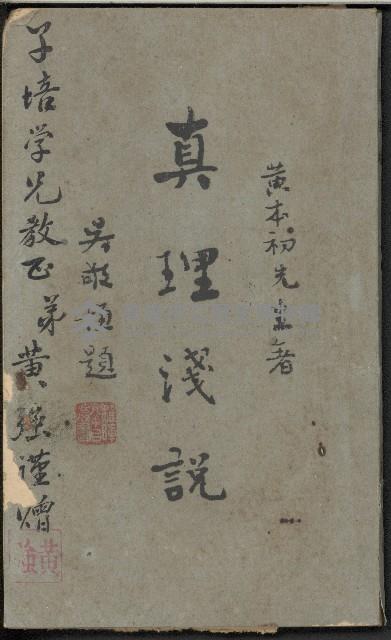 黃本初先生著
真理淺說
吳敬恆題
子培学兄教正 弟黃強謹贈
黃強